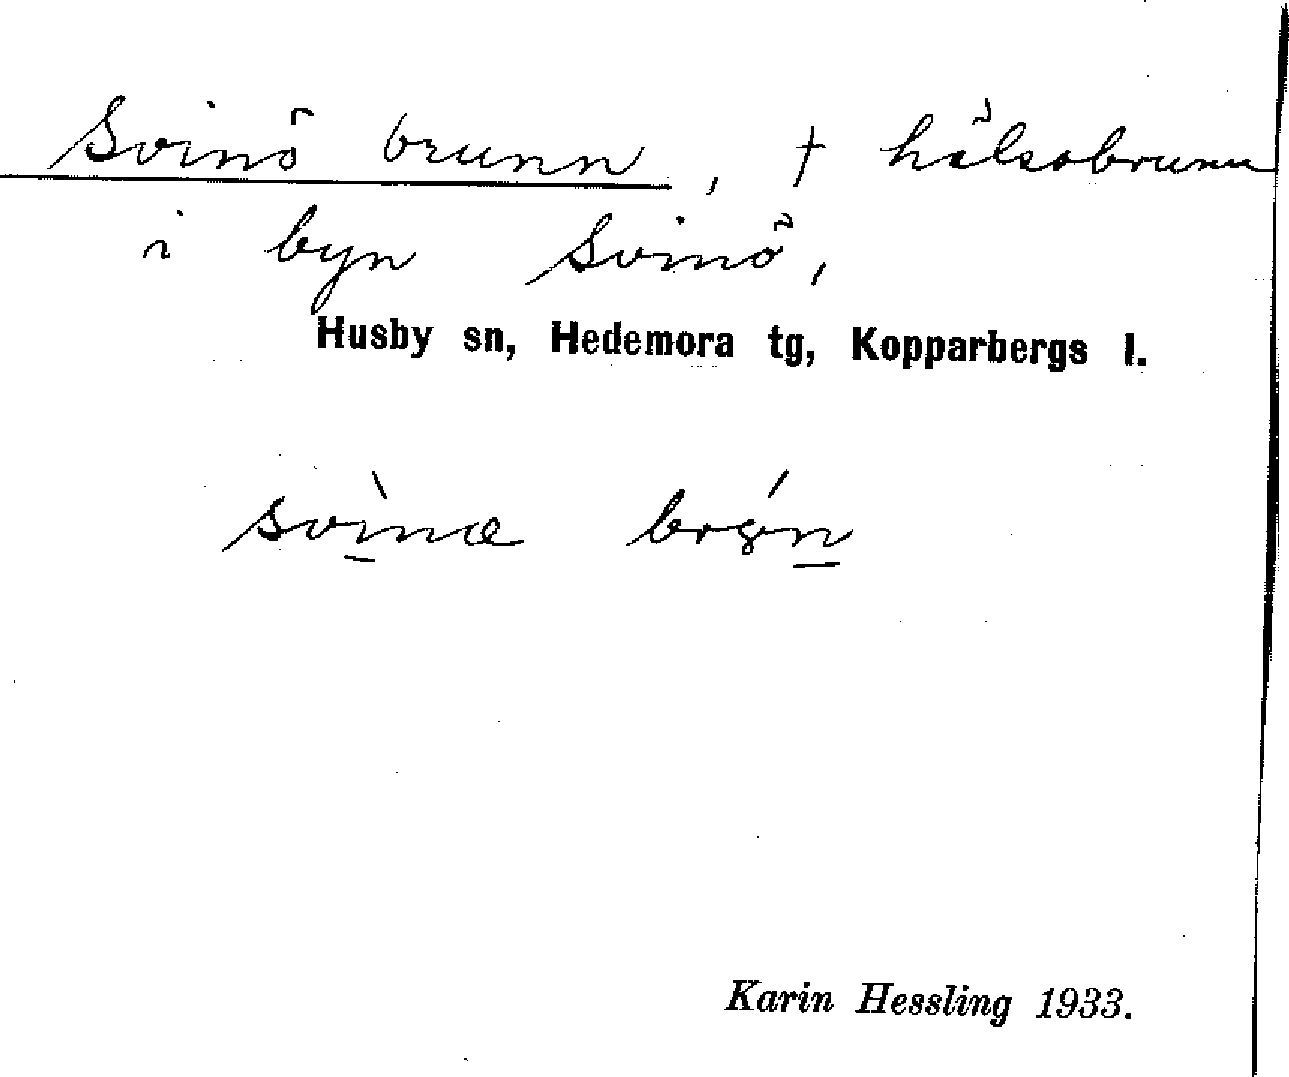 Svinö brunn, † hälsobrunn
i byn Svinö,
Husby sn, Hedemora tg, Kopparbergs l.
svìnæ
Karin Hessling 1933.